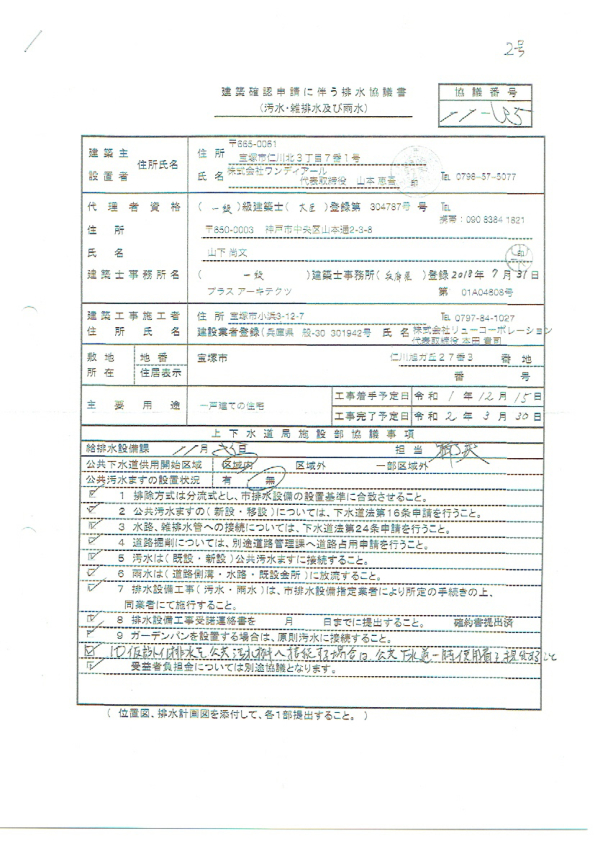 2号
建築確認申請に伴う排水協議書
(汚水・雑排水及び雨水)
協議番号
11-035
建築主 住所氏名 住所 〒665-0061
宝塚市仁川北3丁目7番1号
設置者 氏名 株式会社ワンディアール
代表取締役 山本 印 TEL 0798-57-5077
代理者資格 (一級)級建築士(大臣)登録第 304787号 号 TEL
携帯:090 8384 1821
住所 〒650-0003 神戸市中央区山本通2-3-8
氏名 山下 尚文 印
建築士事務所名 (一級)建築士事務所(兵庫県)登録2018年7月31日
プラス アーキテクツ 第 01A04808号
建築工事施工者 住所 宝塚市小浜3-12-7 TEL 0797-84-1027
住所氏名 建設業者登録(兵庫県 般-30 301942号 氏名 株式会社リューコーポレーション
代表取締役 本田 貴司
敷地 地番 宝塚市 仁川旭ガ丘27番3 番地
所在 住居表示 番 号
主要用途 一戸建ての住宅 工事着手予定日 令和1年12月15日
工事完了予定日 令和2年3月30日
上下水道局施設部協議事項
給排水設備課 11月 日 担当
公共下水道供用開始区域 区域内 区域外 一部区域外
公共汚水ますの設置状況 有 無
1 排除方式は分流式とし、市排水設備の設置基準に合致させること。
2 公共汚水ますの(新設・移設)については、下水道法第16条申請を行うこと。
3 水路、雑排水管への接続については、下水道法第24条申請を行うこと。
4 道路掘削については、別途道路管理課へ道路占用申請を行うこと。
5 汚水は(既設・新設)公共汚水ますに接続すること。
6 雨水は(道路側溝・水路・既設会所)に放流すること。
7 排水設備工事(汚水・雨水)は、市排水設備指定業者により所定の手続きの上、
同業者にて施行すること。
8 排水設備工事受諾連絡書を 月 日までに提出すること。 確約書提出済
9 ガーデンパンを設置する場合は、原則汚水に接続すること。
10 仮設トイレ排水を公共汚水桝へ接続する場合は、公共下水道一時使用届を提出すること
受益者負担金については別途協議となります。
(位置図、排水計画図を添付して、各1部提出すること。)